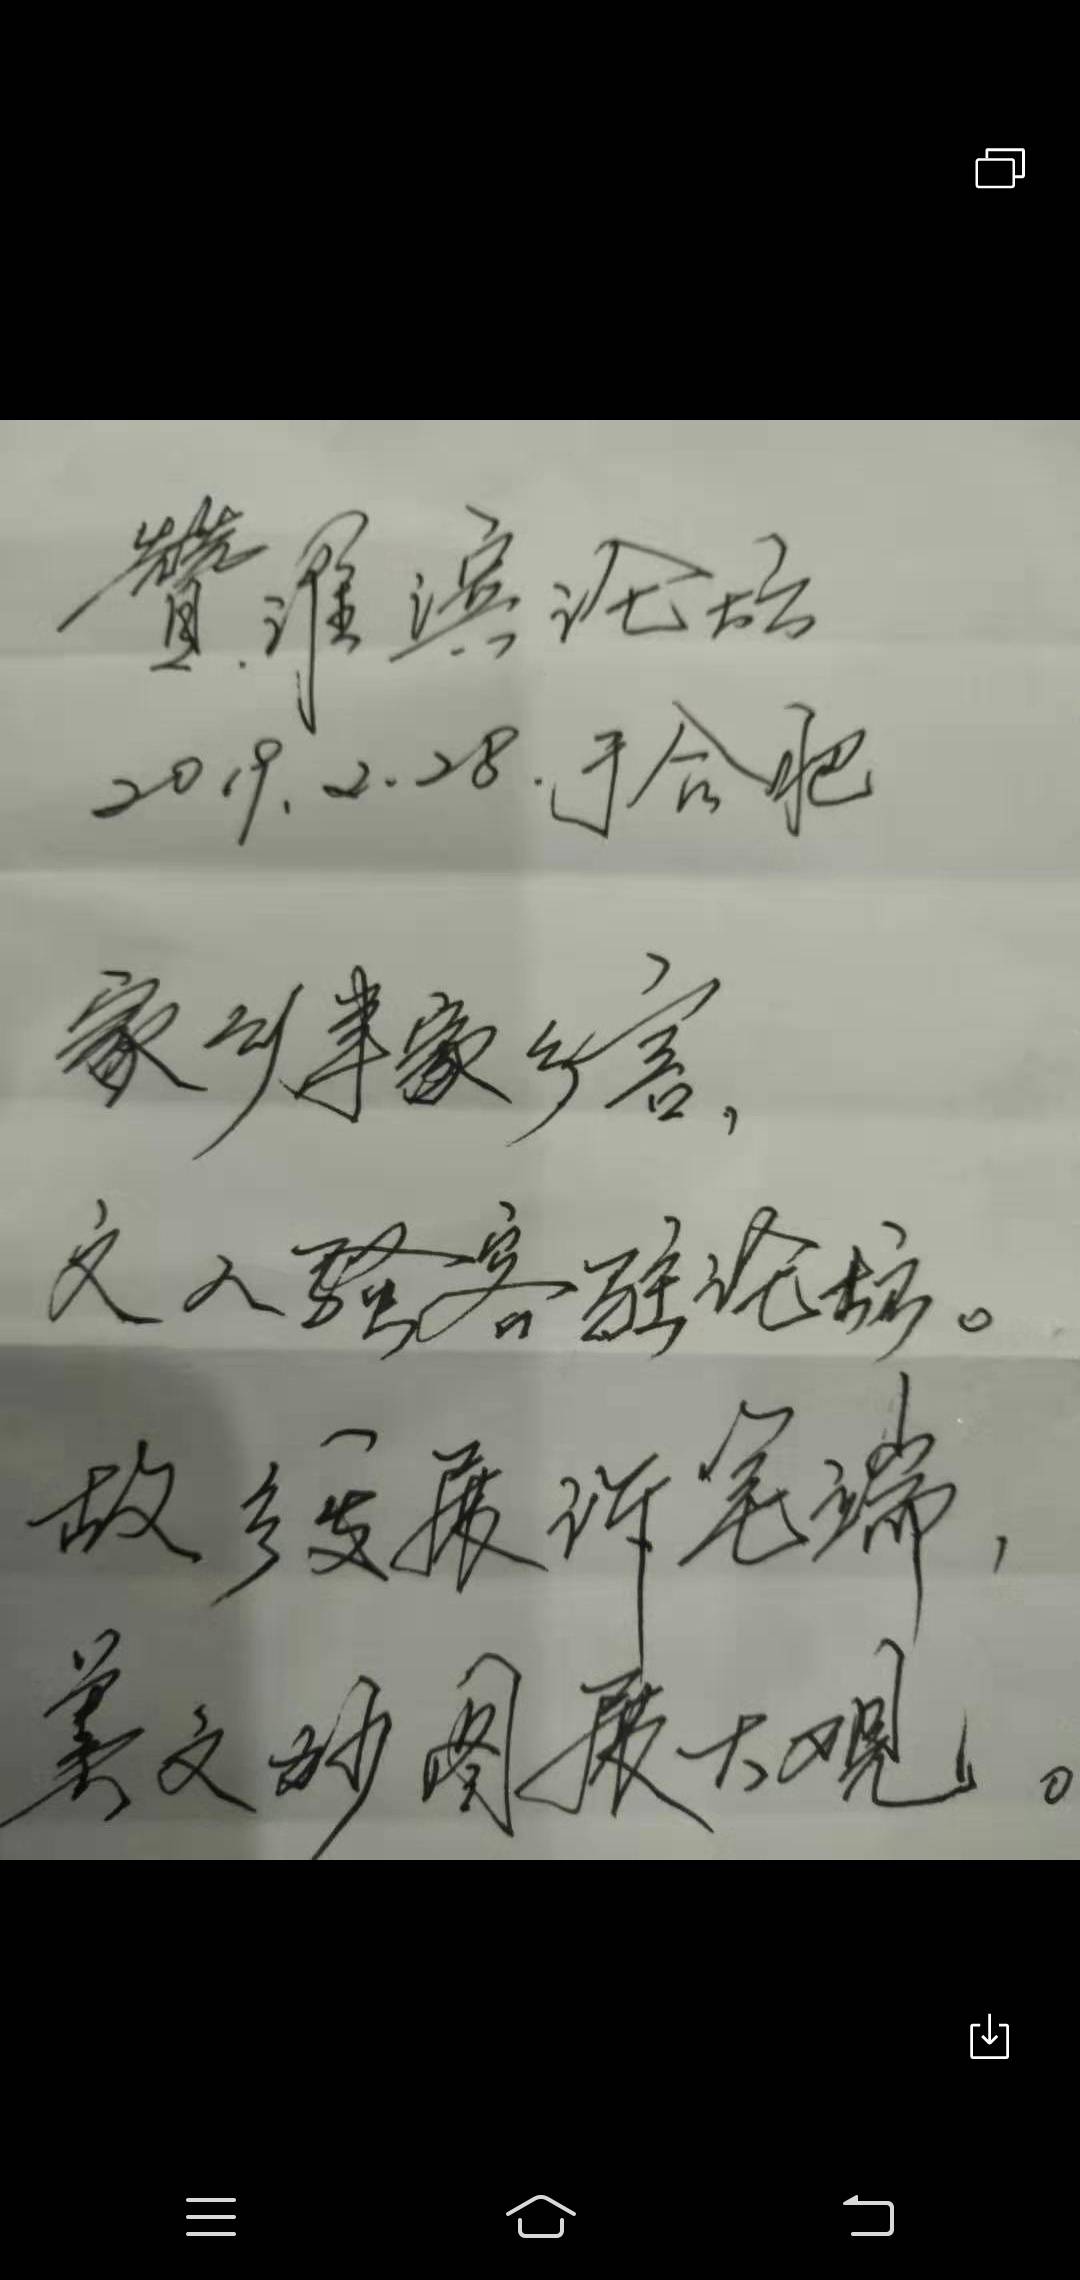 赞淮滨论坛
2019.2.28.于合肥
家乡事家乡言,
文人骚客驻论坛。
故乡发展诉笔端,
美文妙图展大观。